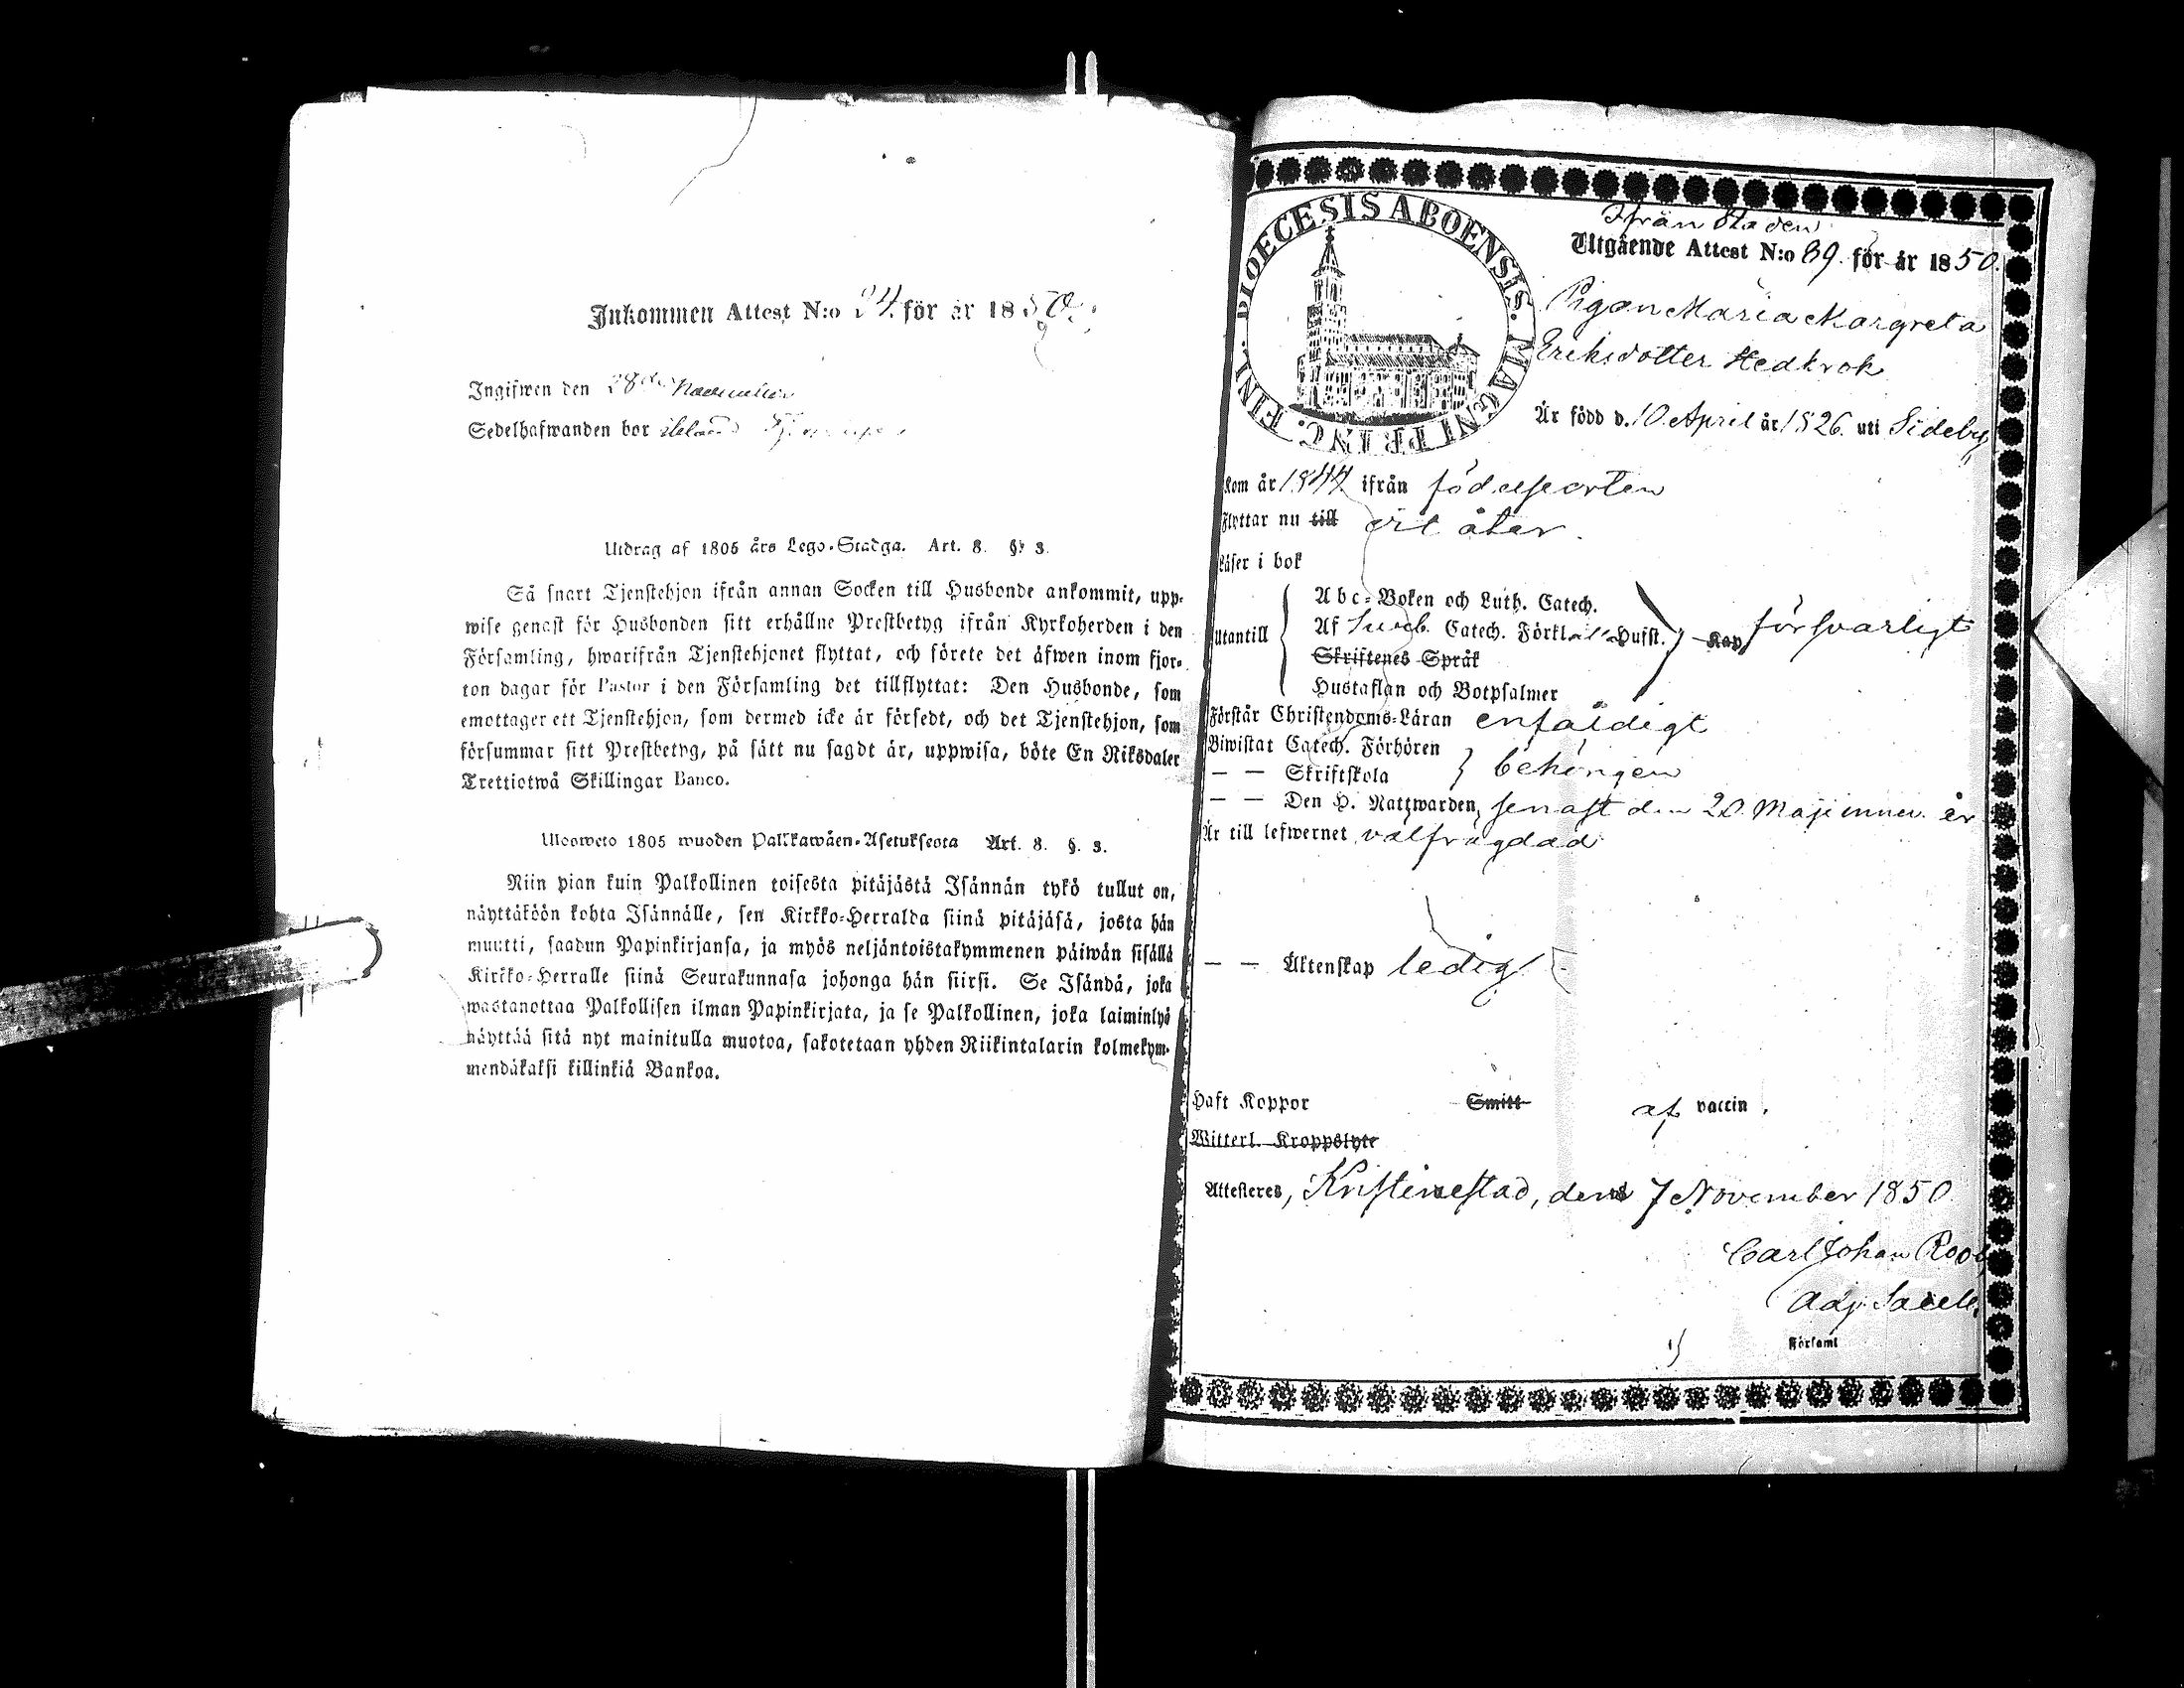 Inkommen Attest N:o 24. för år 1850.
Ingifwen den 28de November
Sedelhafwanden bor
Utdrag af 1805 års Lego-Stadga. Art. 8. §. 3.
Så snart Tjenstehjon ifrån annan Socken till Husbonde ankommit, upp-
wise genast för Husbonden sitt erhållne Prestbetyg ifrån Kyrkoherden i den
Församling, hwarifrån Tjenstehjonet flyttat, och förete det äfwen inom fjor-
ton dagar för Pastor i den Församling det tillflyttat: Den Husbonde, som
emottager ett Tjenstehjon, som dermed icke är försedt, och det Tjenstehjon, som
försummar sitt Prestbetyg, på sätt nu sagdt är, uppwisa, böte En Riksdaler
Trettiotwå Skillingar Banco.
Ulosweto 1805 wuoden Palkkawäen-Asetuksesta Art. 8. §. 3.
Niin pian kuin Palkollinen toisesta pitäjästä Isännän tykö tullut on,
näyttäköön kohta Isännälle, sen Kirkko-Herralda siinä pitäjäsä, josta hän
muutti, saadun Papinkirjansa, ja myös neljäntoistakymmenen päiwän sisällä
Kirkko-Herralle siinä Seurakunnasa johonga hän siirsi. Se Isändä, joka
wastanottaa Palkollisen ilman Papinkirjata, ja se Palkollinen, joka laiminlyö
näyttää sitä nyt mainitulla muotoa, sakotetaan yhden Riikintalarin kolmekym-
mendäkaksi killinkiä Bankoa.
DIOECESIS ABOENSIS. MAGNI PRINC. FINL.
Ifrån Staden
Utgående Attest N:o 89. för år 1850.
Pigan Maria Margreta
Eriksdotter Hedkrok
Är född d. 10 April år 1826. uti Sideby
Kom år 1844 ifrån födelseorten
Flyttar nu till dit åter.
Läser i bok
Utantill
Abc-Boken och Luth. Catech.
Af Sveb. Catech. Förkl. Hufst.
Skriftenes Språk
Hustaflan och Botpsalmer
Kap försvarligt
Förstår Christendoms-Läran enfäldigt
Biwistat Catech. Förhören
— — Skriftskola
behörigen
— — Den H. Nattwarden, senast den 20 Maji innev. år
Är till lefwernet välfrägdad
— — Äktenskap ledig
Haft Koppor Smitt af vaccin.
Witterl. Kroppslyte
Attesteres, Kristinestad, den 7 November 1850
Carl Johan Roos
Adj. Sacell.
Församl